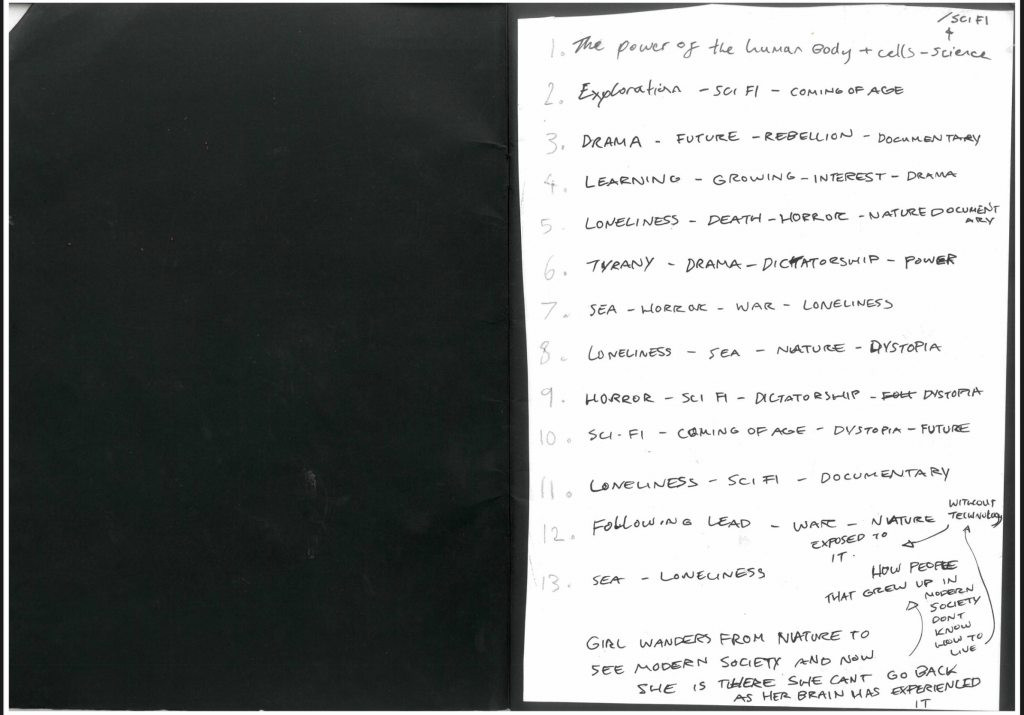 /SCI FI
1. The power of the human body + cells - science
2. Exploration - SCI FI - COMING OF AGE
3. DRAMA - FUTURE - REBELLION - DOCUMENTARY
4. LEARNING - GROWING - INTEREST - DRAMA
5. LONELINESS - DEATH - HORROR - NATURE DOCUMENT
ARY
6. TYRANY - DRAMA - DICTATORSHIP - POWER
7. SEA - HORROR - WAR - LONELINESS
8. LONELINESS - SEA - NATURE - DYSTOPIA
9. HORROR - SCI FI - DICTATORSHIP - DYSTOPIA
10. SCI-FI - COMING OF AGE - DYSTOPIA - FUTURE
11. LONELINESS - SCI FI - DOCUMENTARY
12. FOLLOWING LEAD - WAR - NATURE
WITHOUT
TECHNOLOGY
EXPOSED TO
IT.
13. SEA - LONELINESS
HOW PEOPLE
THAT GREW UP IN
MODERN
SOCIETY
DONT
KNOW
HOW TO
LIVE
GIRL WANDERS FROM NATURE TO
SEE MODERN SOCIETY AND NOW
SHE IS THERE SHE CANT GO BACK
AS HER BRAIN HAS EXPERIENCED
IT